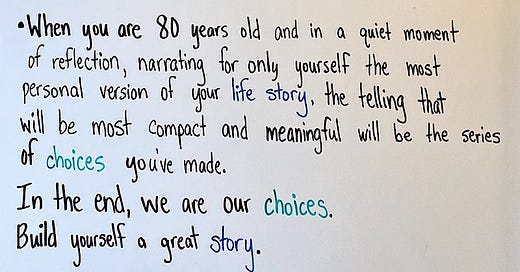 •When you are 80 years old and in a quiet moment
of reflection, narrating for only yourself the most
personal version of your life story, the telling that
will be most compact and meaningful will be the series
of choices you've made.
In the end, we are our choices.
Build yourself a great story.